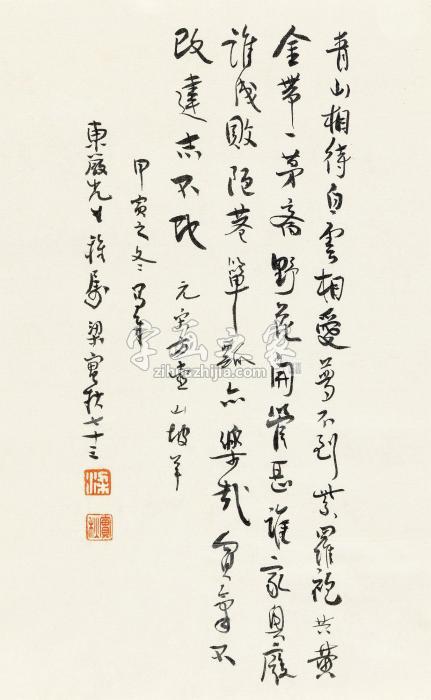 青山相待白雲相愛夢不到紫羅袍共黃
金帶一茅齋野花開管甚誰家興廢
誰成敗陋巷簞瓢亦樂哉貧氣不
改達志不改 元宋方壺山坡羊
甲寅之冬寫奉
東先生雅屬 梁實秋七十三
梁
實秋
字画之家
zihuazhijia.com